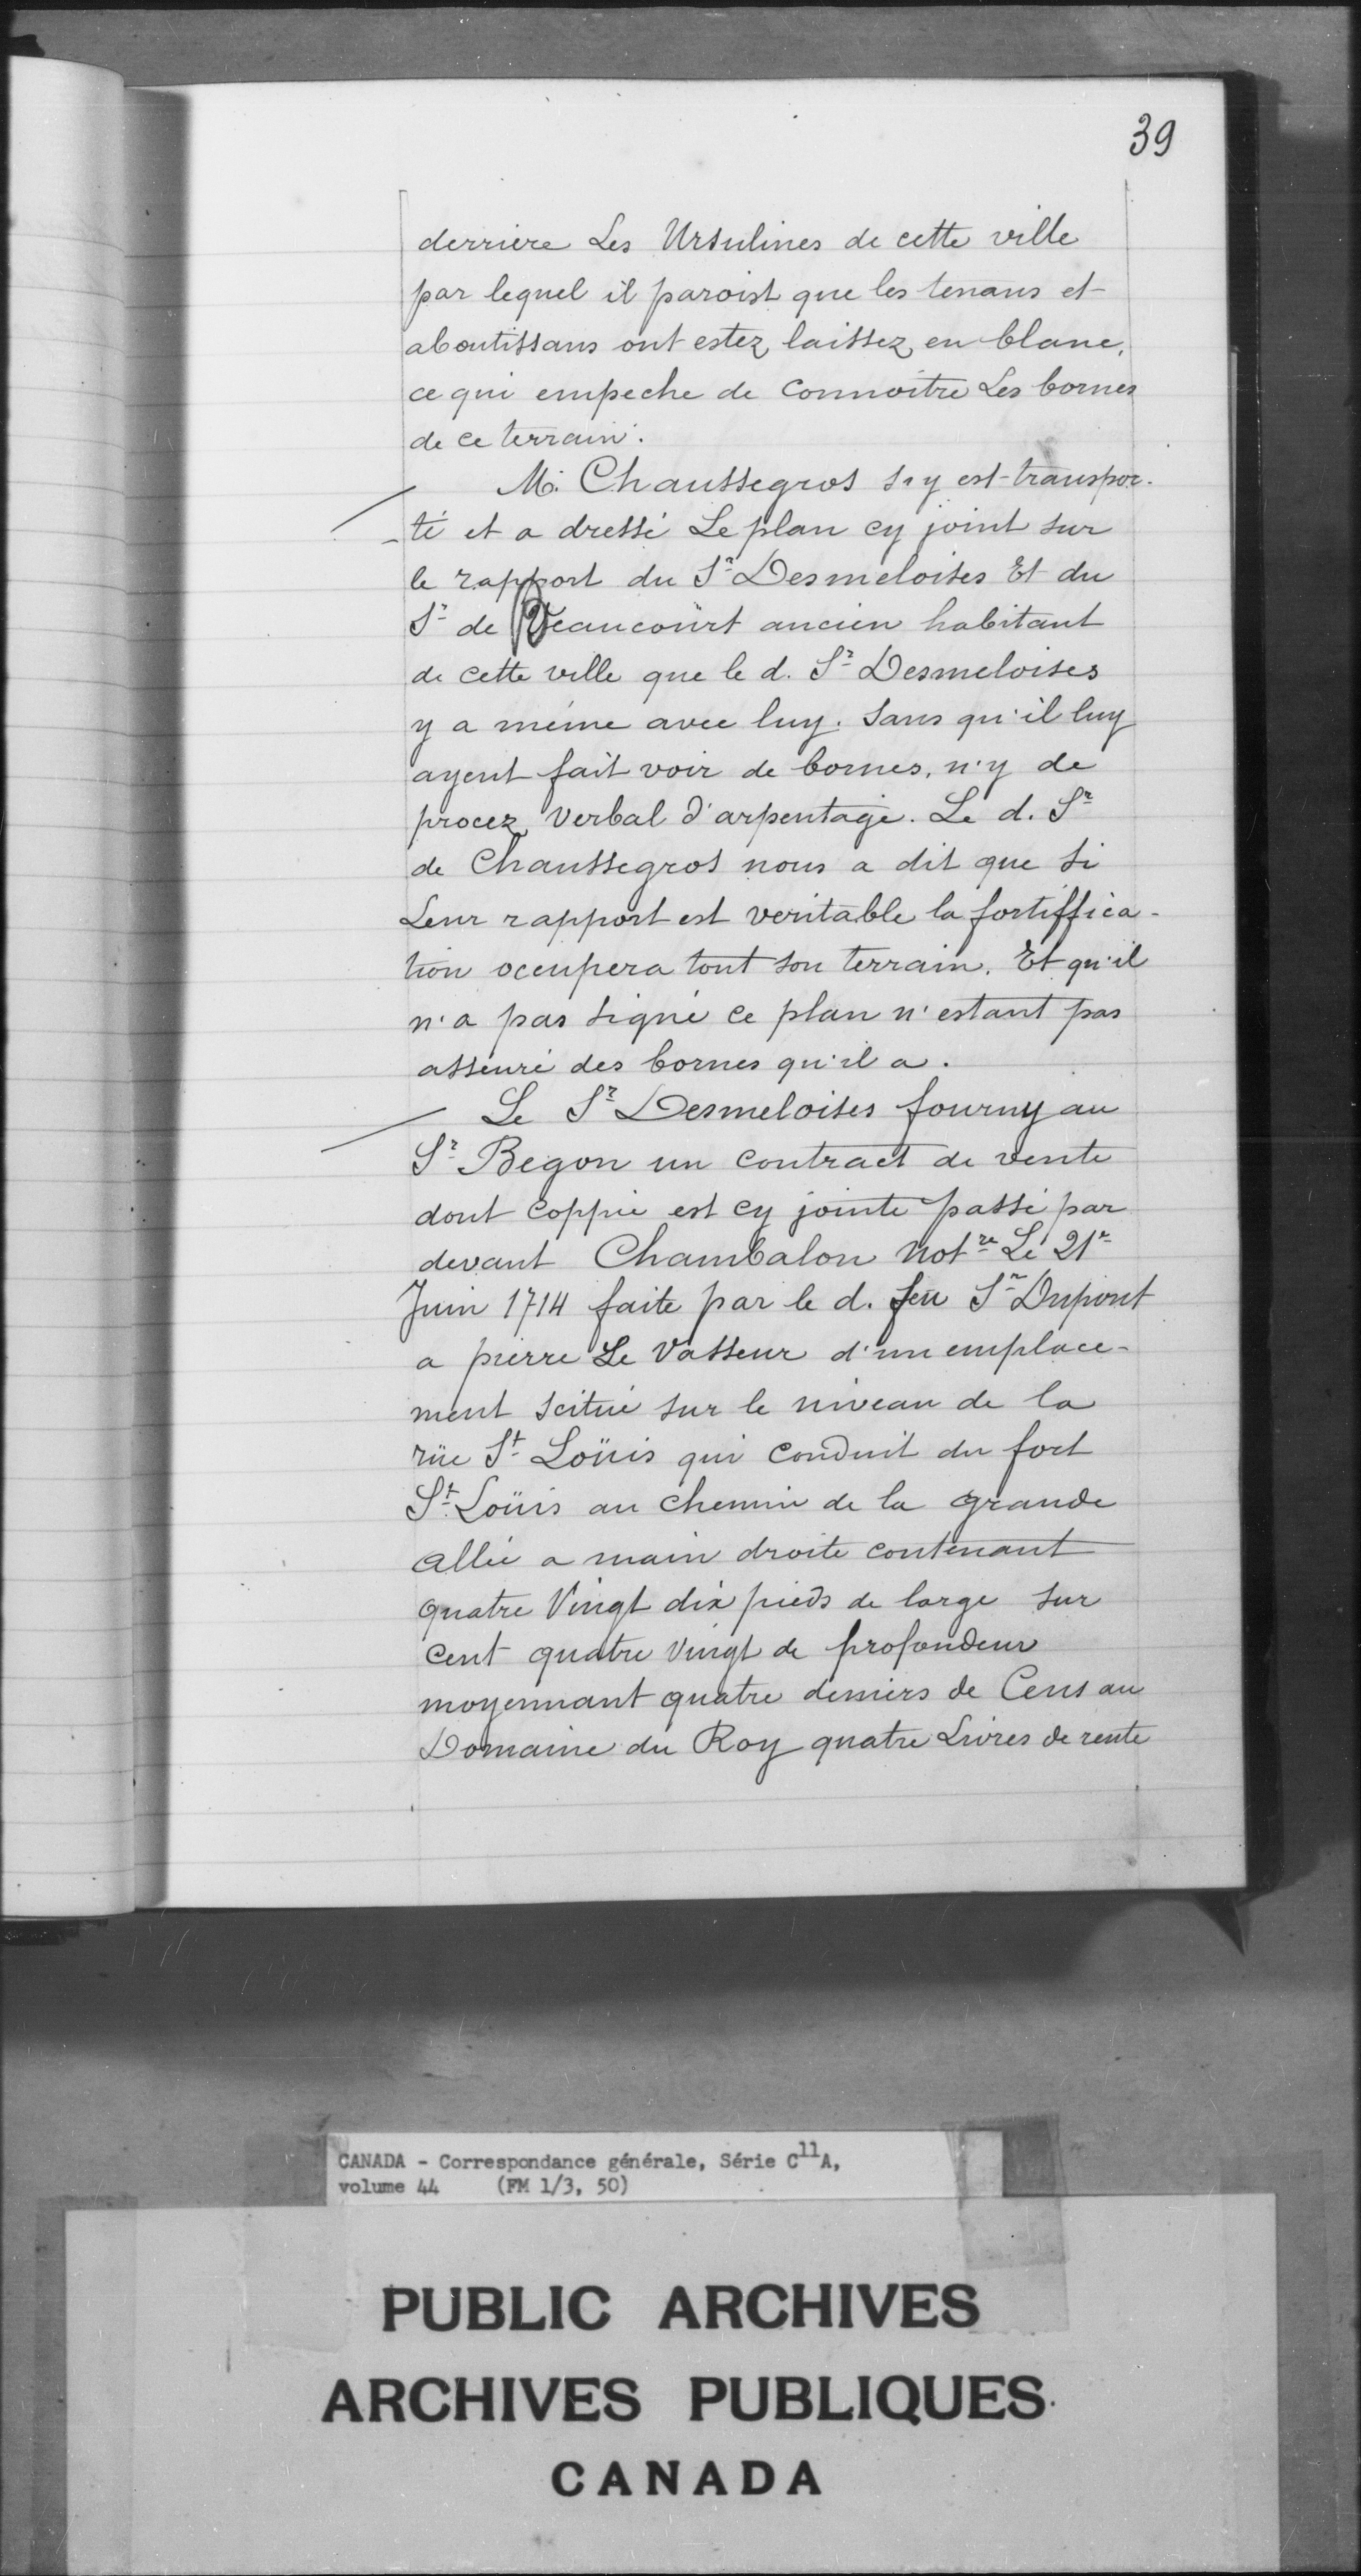 39
derriere Les Ursulines de cette ville
par lequel il paroist que les tenans et
aboutissans ont estez laissez en blanc,
ce qui empeche de connoitre Les bornes
de ce terrain.
M. Chaussegros s'y est transpor-
-té et a dressé Le plan cy joint sur
le rapport du Sr Desmeloises Et du
Sr de Beaucourt ancien habitant
de cette ville que le d. Sr Desmeloises
y a méme avec luy. Sans qu'il luy
ayent fait voir de bornes, n'y de
procez Verbal d'arpentage. Le d. Sr
de Chaussegros nous a dit que si
Leur rapport est veritable la fortiffica-
tion ocupera tout son terrain. Et qu'il
n'a pas signé ce plan n'estant pas
asseuré des bornes qu'il a.
Le Sr Desmeloises fourny au
Sr Begon un contract de vente
dont coppie est cy jointe passé par
devant Chambalon Notre Le 21r
Juin 1714 faite par le d. feu Sr Dupont
a pierre Le Vasseur d'un emplace-
ment scitué sur le niveau de la
rüe St Loüis qui conduit du fort
St Loüis au chemin de la grande
allée a main droite contenant
quatre Vingt dix pieds de large sur
cent quatre vingt de profondeur
moyennant quatre deniers de Cens au
Domaine du Roy quatre Livres de rente
CANADA - Correspondance générale, Série C11A,
volume 44 (FM 1/3, 50)
PUBLIC ARCHIVES
ARCHIVES PUBLIQUES
CANADA